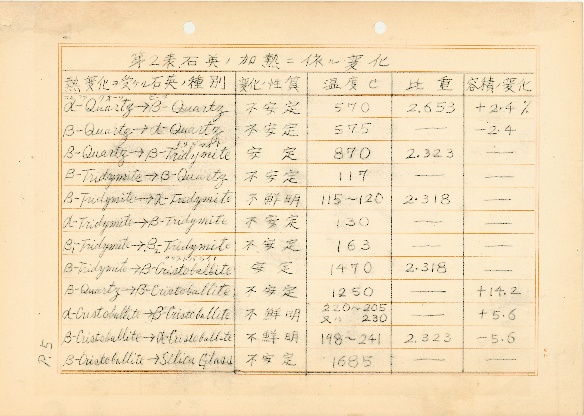 第2表石英ノ加熱ニ依ル変化
熱変化ヲ受ケル石英ノ種別 変化ノ性質 温度 C 比重 容積ノ変化
α-Quartz→β-Quartz 不安定 570 2.653 +2.4%
β-Quartz→α-Quartz 不安定 575 — -2.4
β-Quartz→β-Tridymite 安定 870 2.323 —
β-Tridymite→β-Quartz 不安定 117 — —
β-Tridymite→α-Tridymite 不鮮明 115~120 2.318 —
α-Tridymite→β-Tridymite 不安定 130 — —
β₁-Tridymite→β₂-Tridymite 不安定 163 — —
β-Tridymite→β-Cristoballite 安定 1470 2.318 —
β-Quartz→β-Cristoballite 不安定 1250 — +14.2
α-Cristoballite→β-Cristoballite 不鮮明 220~205 — +5.6
又ハ 230
β-Cristoballite→α-Cristoballite 不鮮明 198~241 2.323 -5.6
β-Cristoballite→Silica Glass 不安定 1685 — —
P.5